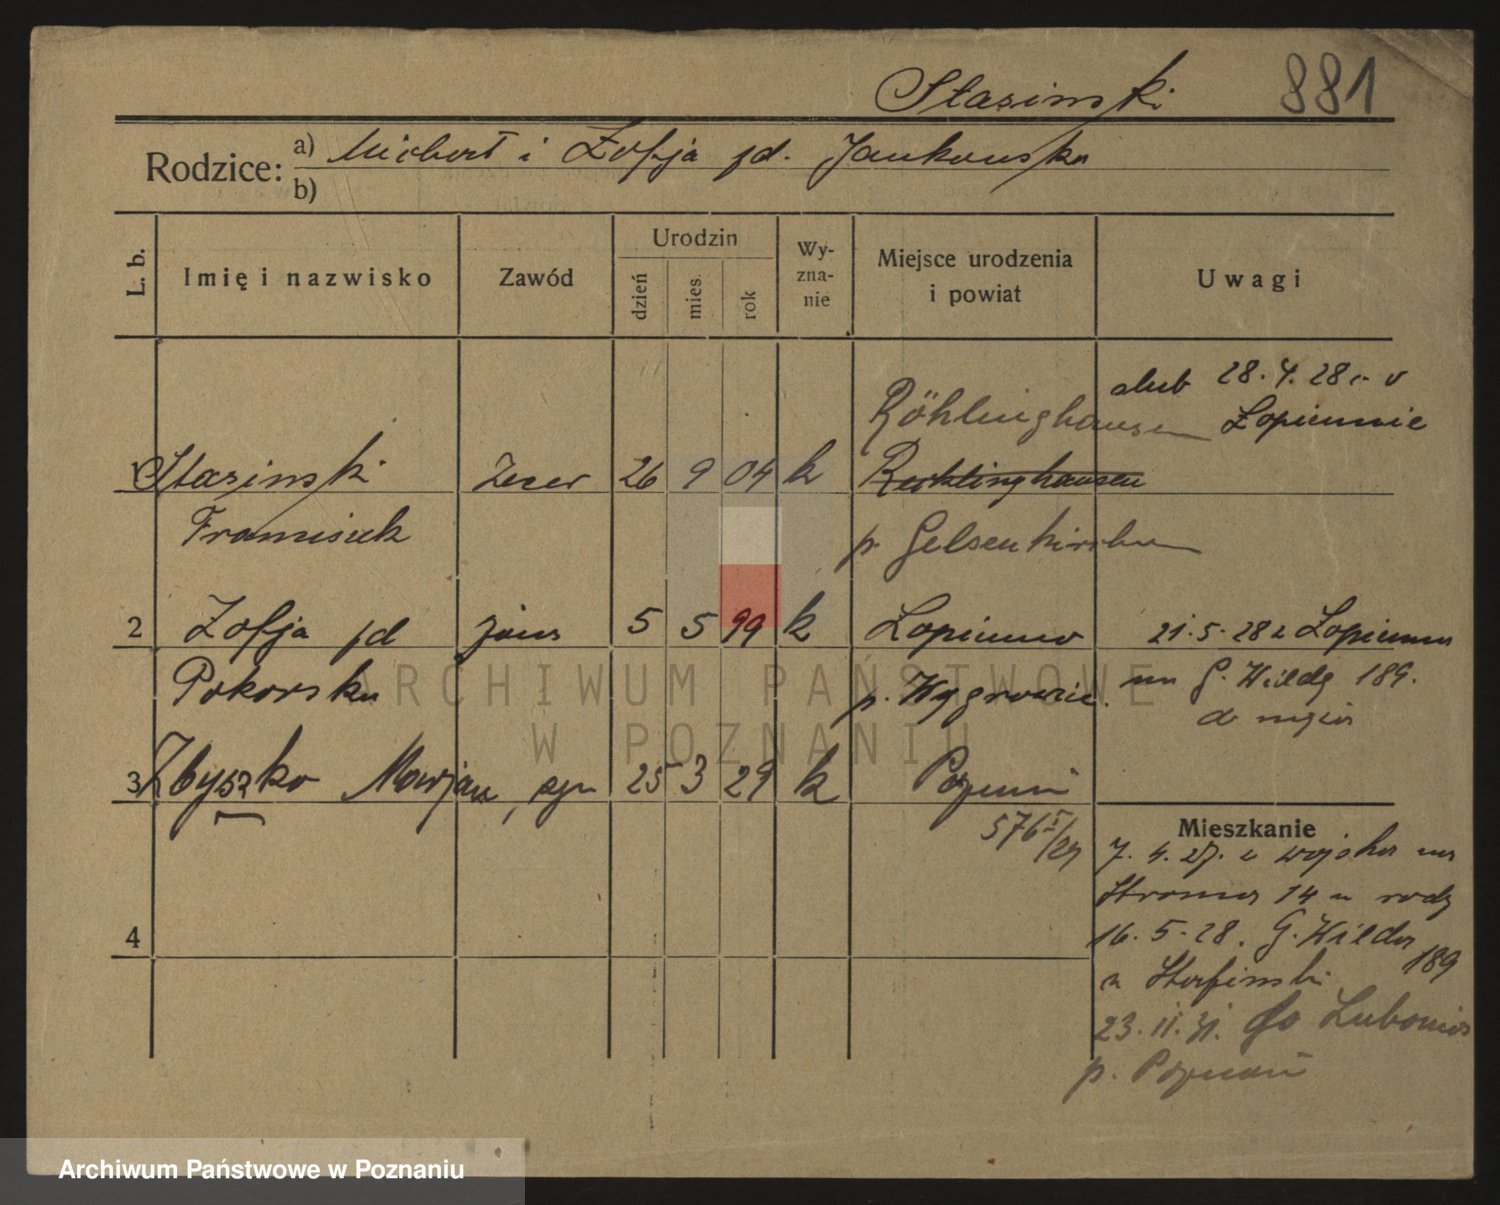 Stasinski 881
Rodzice: a) Michał i Zofja fd. Jankowska
b)
L. b. Imię i nazwisko Zawód Urodzin dzień mies. rok Wyznanie Miejsce urodzenia i powiat Uwagi
ślub 28.4.28 r. w
Röhlinghausen Łopiennie
1 Stasinski Zecer 26 9 04 k Recklinghausen
Franciszek p. Gelsenkirchen
2 Zofja fd żona 5 5 99 k Łopienno 21.5.28 z Łopienna
Pokorska p. Wągrowiec na G. Wildę 189.
do męża
3 Zbyszko Marjan, syn 25 3 29 k Poznań
576 I/29
Mieszkanie
7.4.27. z wojska na
Stroma 14 u rodz
4 16.5.28. G. Wilda 189
u Stasinski
23.11.31. do Lubonia
p. Poznań
ARCHIWUM PAŃSTWOWE
W POZNANIU
Archiwum Państwowe w Poznaniu